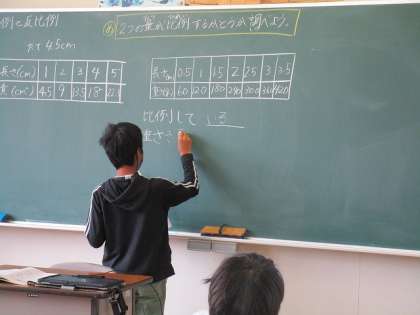 例と反比例
め 2つの量が比例するかどうか調べよう。
たて 4.5cm
長さ(cm) 1 2 3 4 5
4.5 9 13.5 18
長さ 0.5 1 1.5 2 2.5 3 3.5
60 120 180 240 300 360 420
比例して いる
重さ